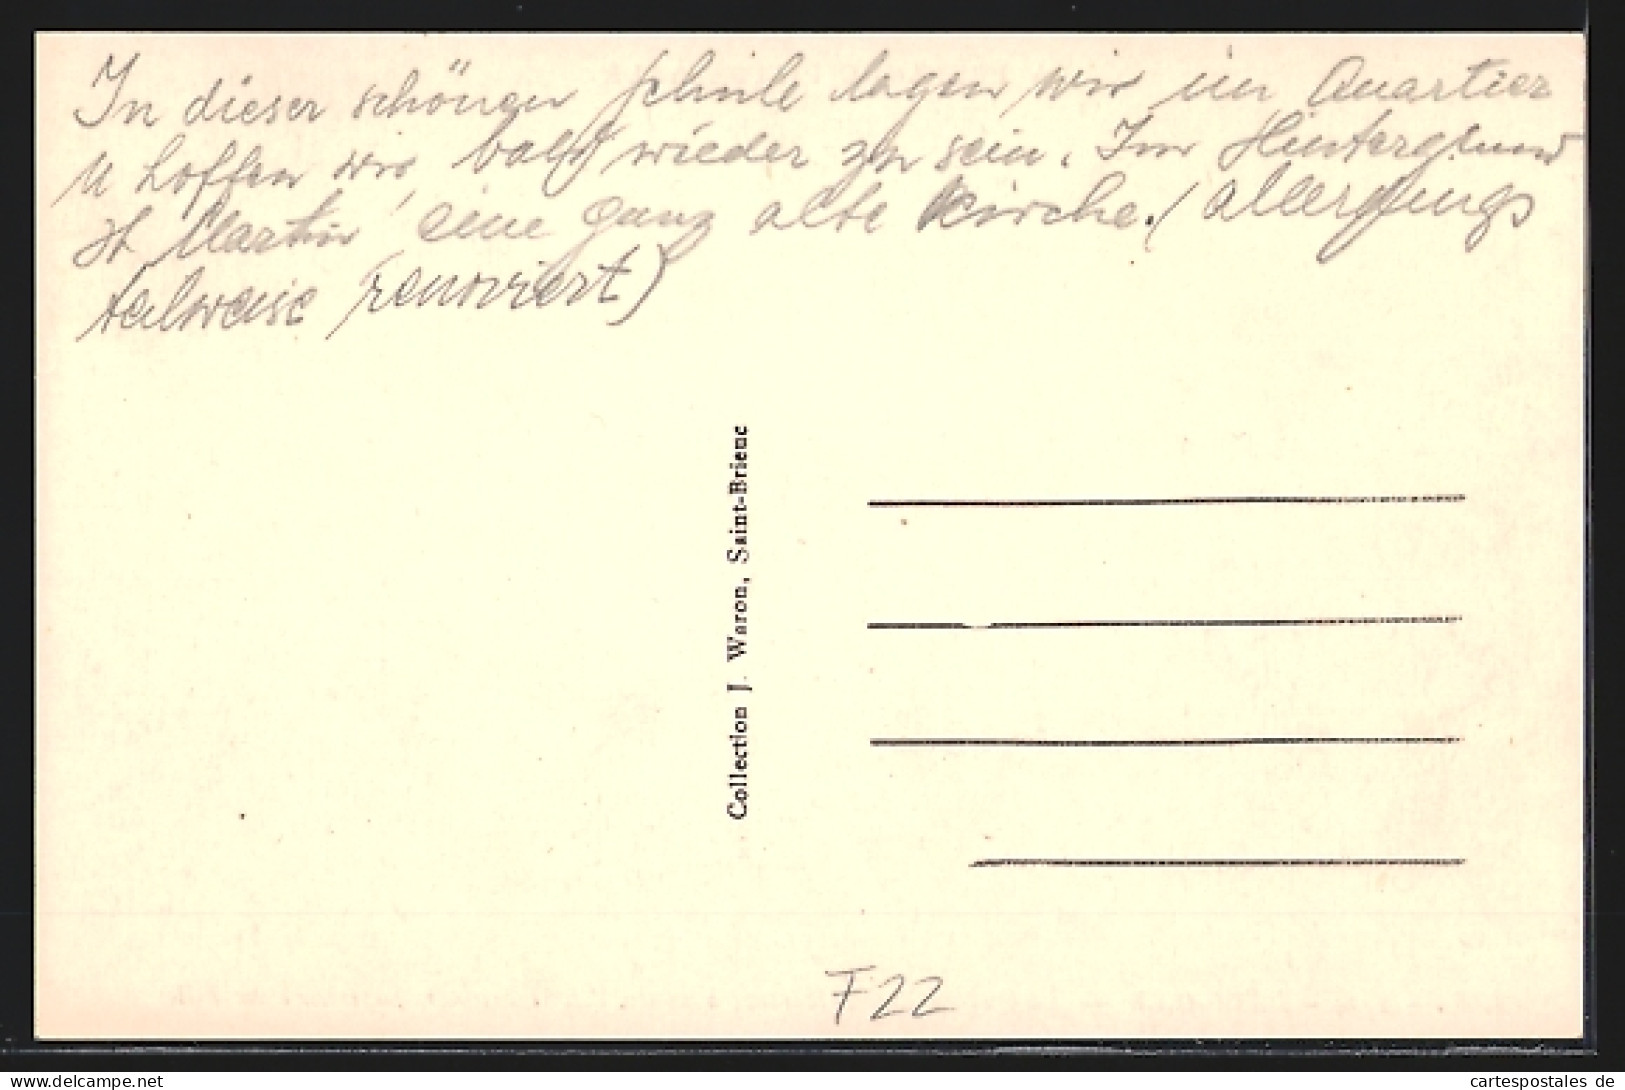 In dieser schönen Schule lagen wir im Quartier
u hoffen wir bald wieder zu sein. Im Hintergrund
St Martin eine ganz alte Kirche. (allerdings
teilweise renoviert)
Collection J. Waron, Saint-Brieuc
F22
cartespostales.de